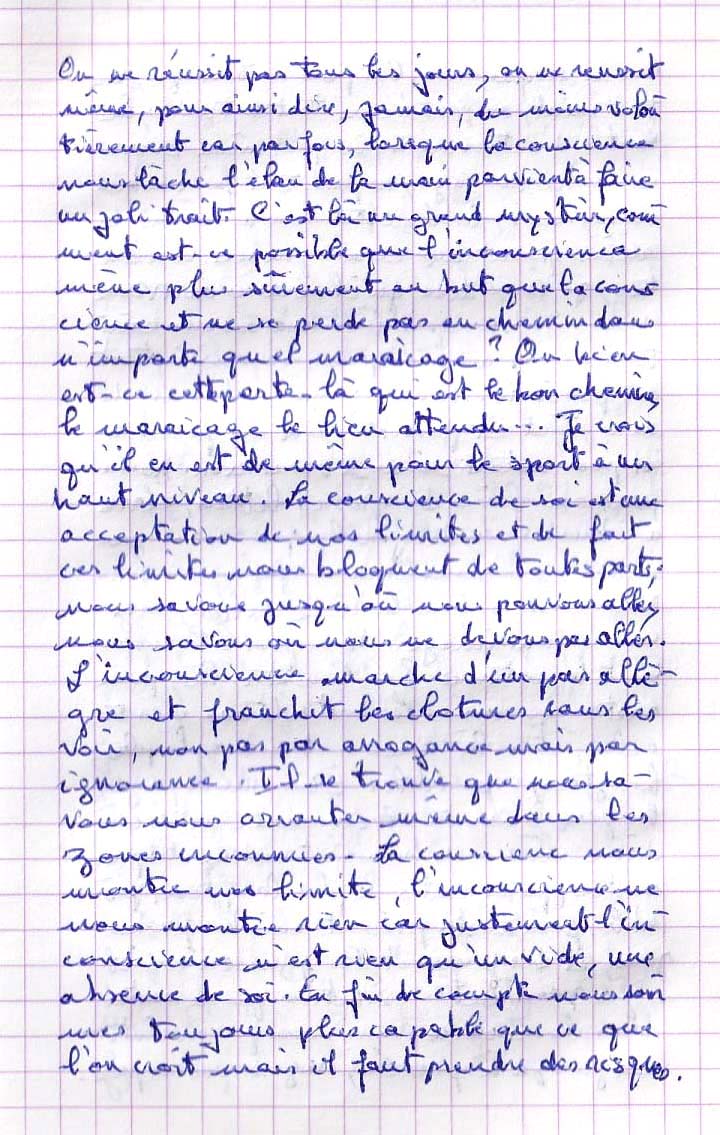 On ne réussit pas tous les jours, on ne réussit
même, pour ainsi dire, jamais, du moins volon
tièrement car parfois, lorsque la conscience
nous lâche l'élan de la main parvient à faire
un joli trait. C'est là un grand mystère, com
ment est-ce possible que l'inconscience
mène plus sûrement au but que la cons
cience et ne se perde pas en chemin dans
n'importe quel maraicage ? Ou bien
est-ce cette perte-là qui est le bon chemin,
le maraicage le lieu attendu... Je crois
qu'il en est de même pour le sport à un
haut niveau. La conscience de soi est une
acceptation de nos limites et de fait
ces limites nous bloquent de toutes parts,
nous savons jusqu'où nous pouvons aller,
nous savons où nous ne devons pas aller.
L'inconscience marche d'un pas allè-
gre et franchit les clotures sans les
voir, non pas par arrogance mais par
ignorance. Il se trouve que nous sa-
vons nous orienter même dans les
zones inconnues. La conscience nous
montre nos limite, l'inconscience ne
nous montre rien car justement l'in
conscience n'est rien qu'un vide, une
absence de soi. En fin de compte nous som
mes toujours plus capable que ce que
l'on croit mais il faut prendre des risques.